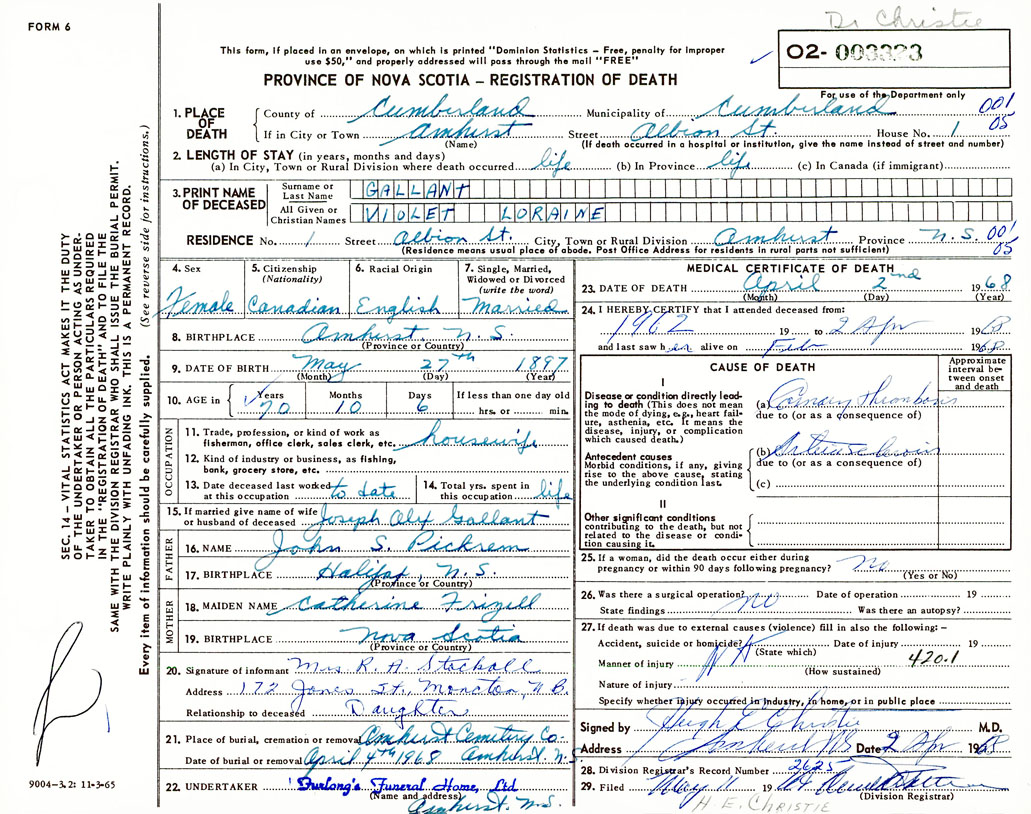 Dr Christie
FORM 6
This form, if placed in an envelope, on which is printed "Dominion Statistics – Free, penalty for improper
use $50," and properly addressed will pass through the mail "FREE"
PROVINCE OF NOVA SCOTIA – REGISTRATION OF DEATH
02- 003323
For use of the Department only
001
05
1. PLACE OF DEATH
County of Cumberland Municipality of Cumberland
If in City or Town Amherst Street Albion St. House No. 1
(Name) (If death occurred in a hospital or institution, give the name instead of street and number)
2. LENGTH OF STAY (in years, months and days)
(a) In City, Town or Rural Division where death occurred life (b) In Province life (c) In Canada (if immigrant)
3. PRINT NAME OF DECEASED
Surname or Last Name GALLANT
All Given or Christian Names VIOLET LORAINE
RESIDENCE No. 1 Street Albion St. City, Town or Rural Division Amherst Province N.S. 001
05
(Residence means usual place of abode. Post Office Address for residents in rural parts not sufficient)
4. Sex Female
5. Citizenship (Nationality) Canadian
6. Racial Origin English
7. Single, Married, Widowed or Divorced (write the word) Married
8. BIRTHPLACE Amherst, N.S.
(Province or Country)
9. DATE OF BIRTH May 27th 1897
(Month) (Day) (Year)
10. AGE in Years 70 Months 10 Days 6 If less than one day old hrs. or min.
OCCUPATION
11. Trade, profession, or kind of work as fisherman, office clerk, sales clerk, etc. housewife
12. Kind of industry or business, as fishing, bank, grocery store, etc.
13. Date deceased last worked at this occupation to date
14. Total yrs. spent in this occupation life
15. If married give name of wife or husband of deceased Joseph Alex Gallant
FATHER
16. NAME John S. Pickrem
17. BIRTHPLACE Halifax, N.S.
(Province or Country)
MOTHER
18. MAIDEN NAME Catherine Frizell
19. BIRTHPLACE Nova Scotia
(Province or Country)
20. Signature of informant Mrs. R. A.
Address 172 Jones St., Moncton, N.B.
Relationship to deceased Daughter
21. Place of burial, cremation or removal Amherst Cemetery Co.
Date of burial or removal April 4th 1968 Amherst, N.S.
22. UNDERTAKER Furlong's Funeral Home, Ltd
(Name and address)
Amherst, N.S.
MEDICAL CERTIFICATE OF DEATH
23. DATE OF DEATH April 2nd 1968
(Month) (Day) (Year)
24. I HEREBY CERTIFY that I attended deceased from:
1962 19 to 2 Apr 1968
and last saw her alive on Feb 1968
CAUSE OF DEATH
Approximate interval between onset and death
I
Disease or condition directly leading to death (This does not mean the mode of dying, e.g., heart failure, asthenia, etc. It means the disease, injury, or complication which caused death.)
(a) Coronary thrombosis
due to (or as a consequence of)
Antecedent causes
Morbid conditions, if any, giving rise to the above cause, stating the underlying condition last.
(b) Arteriosclerosis
due to (or as a consequence of)
(c)
II
Other significant conditions contributing to the death, but not related to the disease or condition causing it.
25. If a woman, did the death occur either during pregnancy or within 90 days following pregnancy? No
(Yes or No)
26. Was there a surgical operation? no Date of operation 19
State findings Was there an autopsy?
27. If death was due to external causes (violence) fill in also the following: –
Accident, suicide or homicide? Date of injury 19
(State which)
Manner of injury 420.1
(How sustained)
Nature of injury
Specify whether injury occurred in industry, in home, or in public place
Signed by Hugh E Christie M.D.
Address Amherst NS Date 2 Apr 1968
28. Division Registrar's Record Number 2625
29. Filed May 11 19
(Division Registrar)
H. E. CHRISTIE
SEC. 14 – VITAL STATISTICS ACT MAKES IT THE DUTY
OF THE UNDERTAKER OR PERSON ACTING AS UNDER-
TAKER TO OBTAIN ALL THE PARTICULARS REQUIRED
IN THE "REGISTRATION OF DEATH" AND TO FILE THE
SAME WITH THE DIVISION REGISTRAR WHO SHALL ISSUE THE BURIAL PERMIT.
WRITE PLAINLY WITH UNFADING INK. THIS IS A PERMANENT RECORD.
Every item of information should be carefully supplied. (See reverse side for instructions.)
9004–3.2: 11-3-65